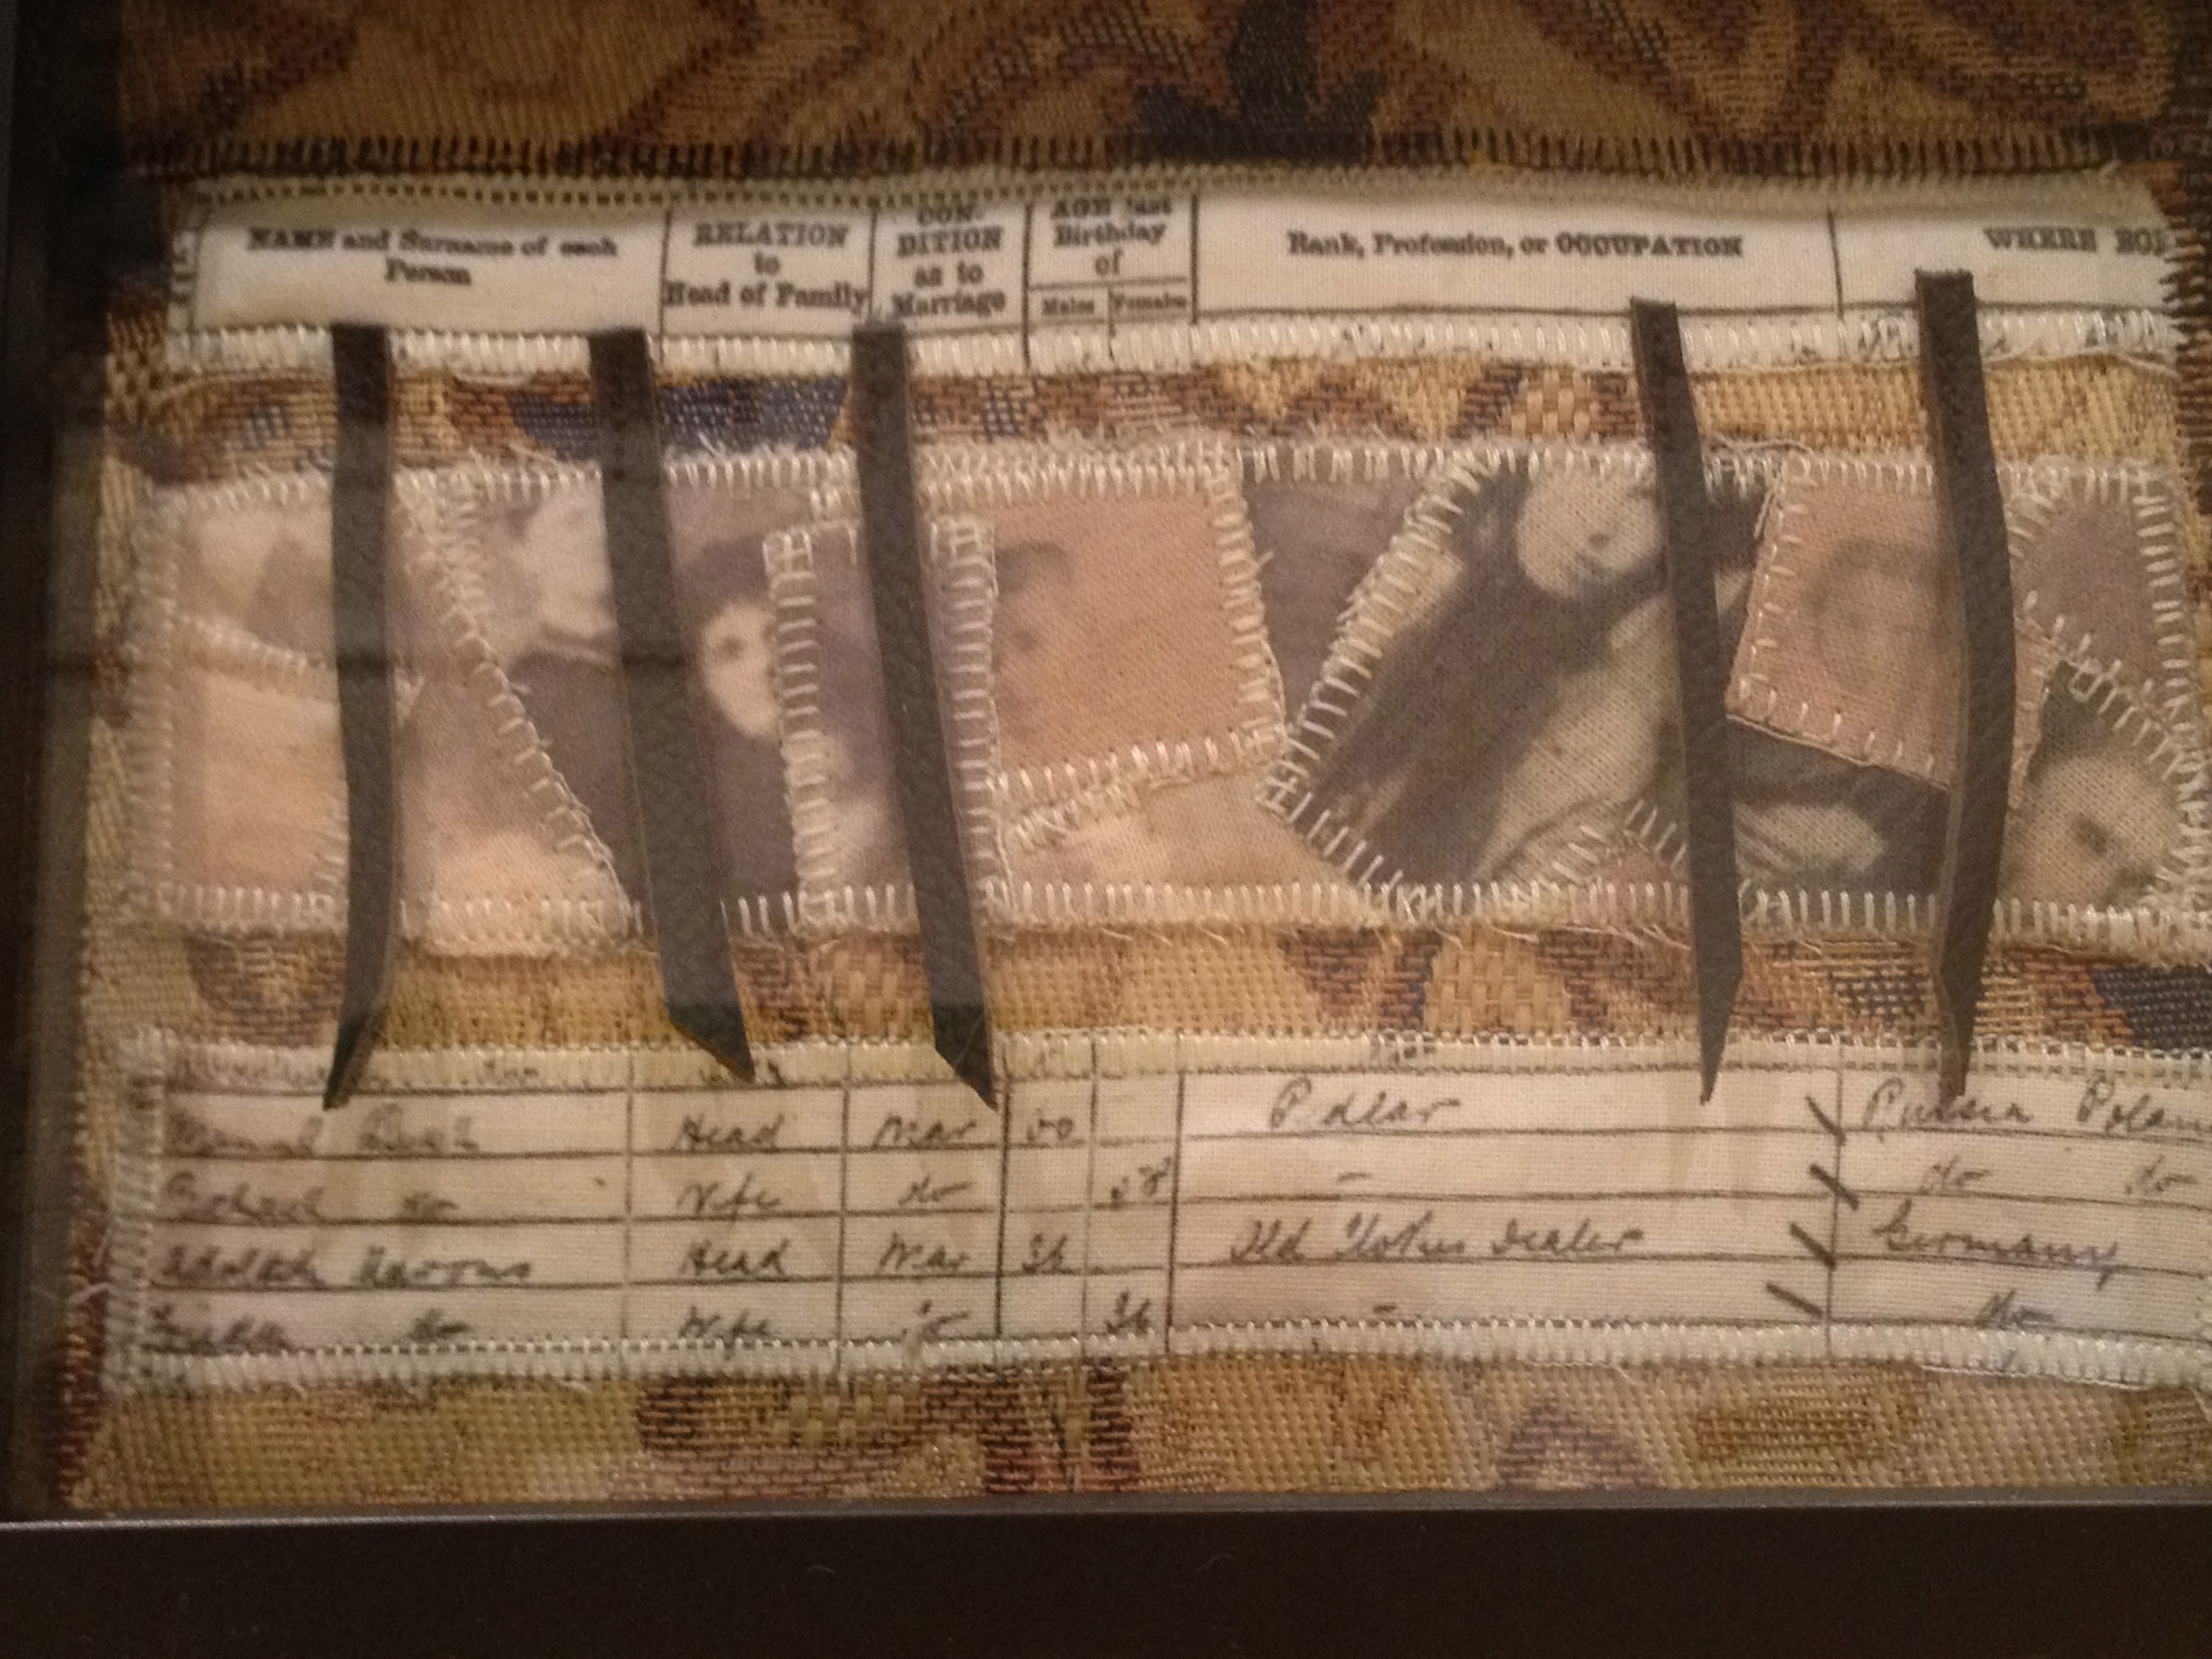 NAME and Surname of each Person RELATION to Head of Family CON- DITION as to Marriage AGE last Birthday of Males Females Rank, Profession, or OCCUPATION WHERE BO
Head Mar Pedlar Russia Polan
do Wife do - do do
Aarons Head Mar Old Clothes Dealer Germany
do Wife do - do